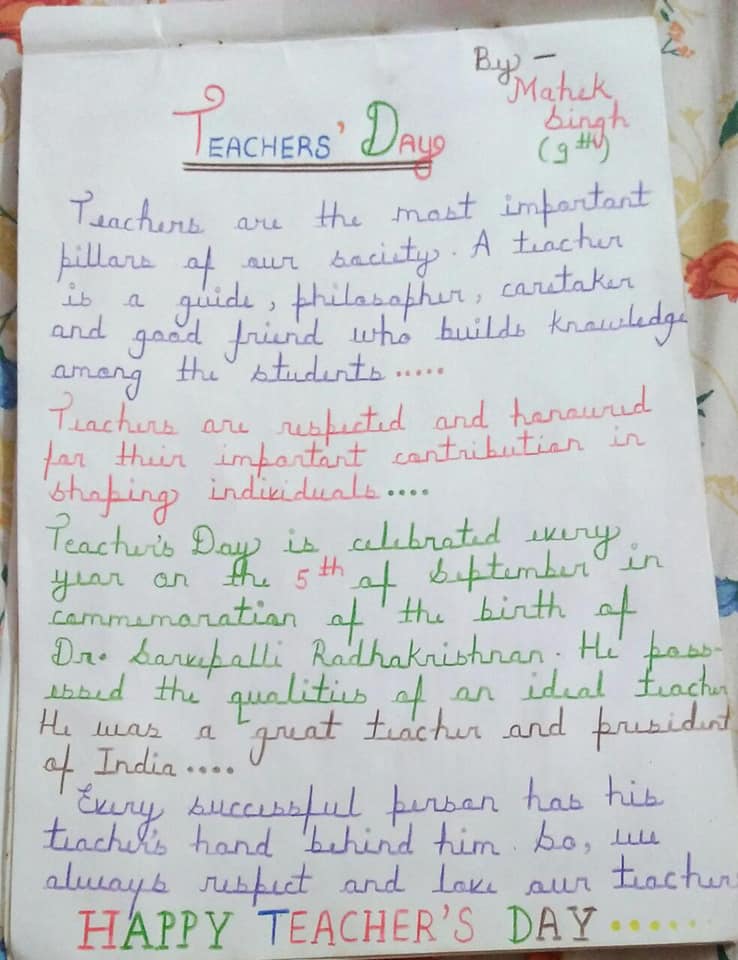 By -
Mahek
Singh
(9th)
TEACHERS' DAY
Teachers are the most important
pillars of our society. A teacher
is a guide, philosopher, caretaker
and good friend who builds knowledge
among the students.....
Teachers are respected and honoured
for their important contribution in
shaping individuals....
Teacher's Day is celebrated every
year on the 5th of September in
commemoration of the birth of
Dr. Sarvepalli Radhakrishnan. He poss-
essed the qualities of an ideal teacher
He was a great teacher and president
of India....
Every successful person has his
teacher's hand behind him. So, we
always respect and love our teacher
HAPPY TEACHER'S DAY......